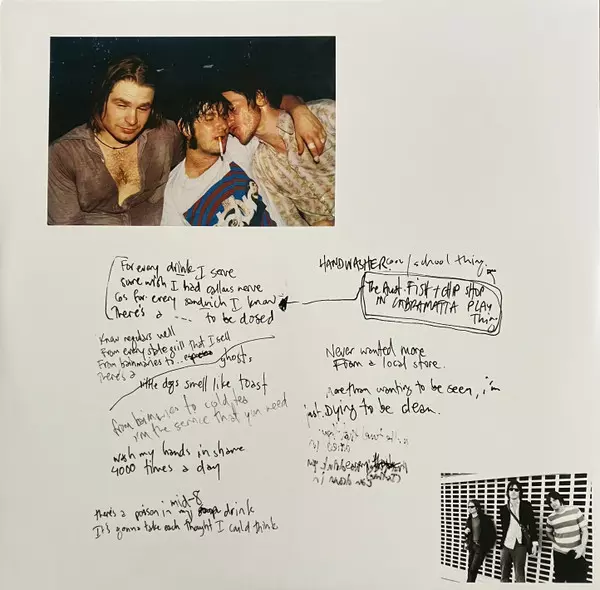 For every drink I serve
sure wish I had callous nerve
Cos for every sandwich I know
There's a .... to be closed
Know regulars well
From every stale grill that I sell
From bainmaries to ghosts
There's a
little dogs smell like toast
from bainmaries to cold tea
I'm the service that you need
wash my hands in shame
4000 times a day
mid-8
there's a poison in my drink
It's gonna take each thought I could think
HANDWASHER / school thing
The Aunt Fish + chip SHOP
IN CABRAMATTA PLAY
Thing
Never wanted more
From a local store.
more than wanting to be seen, i'm
just Dying to be clean.